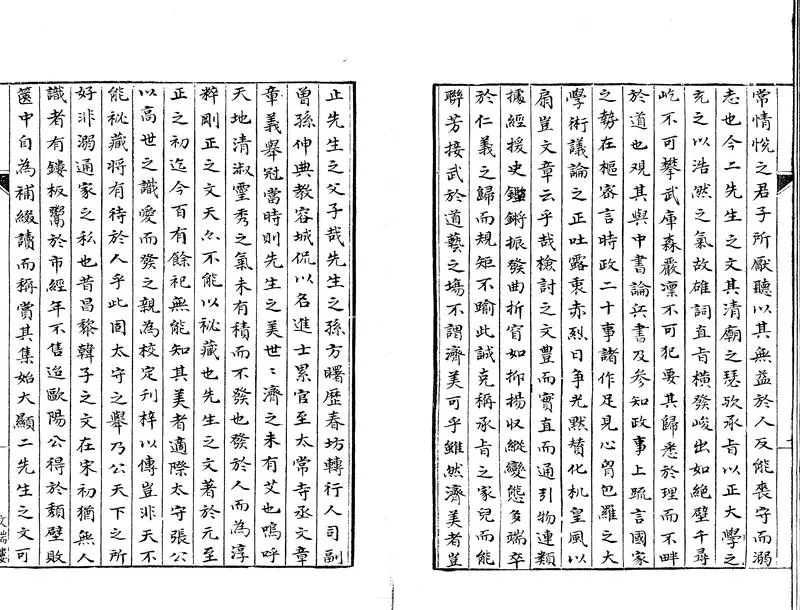 常情悅之君子所厭聽以其無益於人反能喪守而溺
志也今二先生之文其清廟之瑟歟承旨以正大學之
充之以浩然之氣故雄詞直旨橫發峻出如絕壁千尋
屹不可攀武庫森嚴凜不可犯要其歸悉於理而不畔
於道也觀其與中書論兵書及參知政事上疏言國家
之勢在樞密言時政二十事諸作足見心胷包羅之大
學術議論之正吐露衷赤烈日爭光黙贊化机皇風以
扇豈文章云乎哉檢討之文豊而實直而通引物連類
據經援史鏗鏘振發曲折窅如抑揚収縱變態多端卒
於仁義之歸而規矩不踰此誠克稱承旨之家兒而能
聯芳接武於道藝之塲不謂濟美可乎雖然濟美者豈
止先生之父子哉先生之孫方曙歷春坊轉行人司副
曾孫伸典教容城侃以名進士累官至太常寺丞文章
章義舉冠當時則先生之美世〻濟之未有艾也嗚呼
天地清淑靈秀之氣未有積而不發也發於人而為淳
粹剛正之文天亦不能以秘藏也先生之文著於元至
正之初迄今百有餘祀無能知其美者適際太守張公
以高世之識愛而發之親為校定刋梓以傳豈非天不
能秘藏將有待於人乎此固太守之舉乃公天下之所
好非溺通家之私也昔昌黎韓子之文在宋初猶無人
識者有鏤板鬻於市經年不售迨歐陽公得於頽壁敗
篋中自為補綴讀而稱賞其集始大顯二先生之文可
文瑞樓